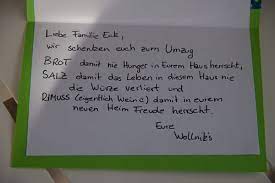 Liebe Familie Eckl,
wir schenken euch zum Umzug
BROT damit nie Hunger in Eurem Haus herrscht,
SALZ damit das Leben in diesem Haus nie
die Würze verliert und
RIMUSS (eigentlich Wein) damit in eurem
neuen Heim Freude herrscht.
Eure